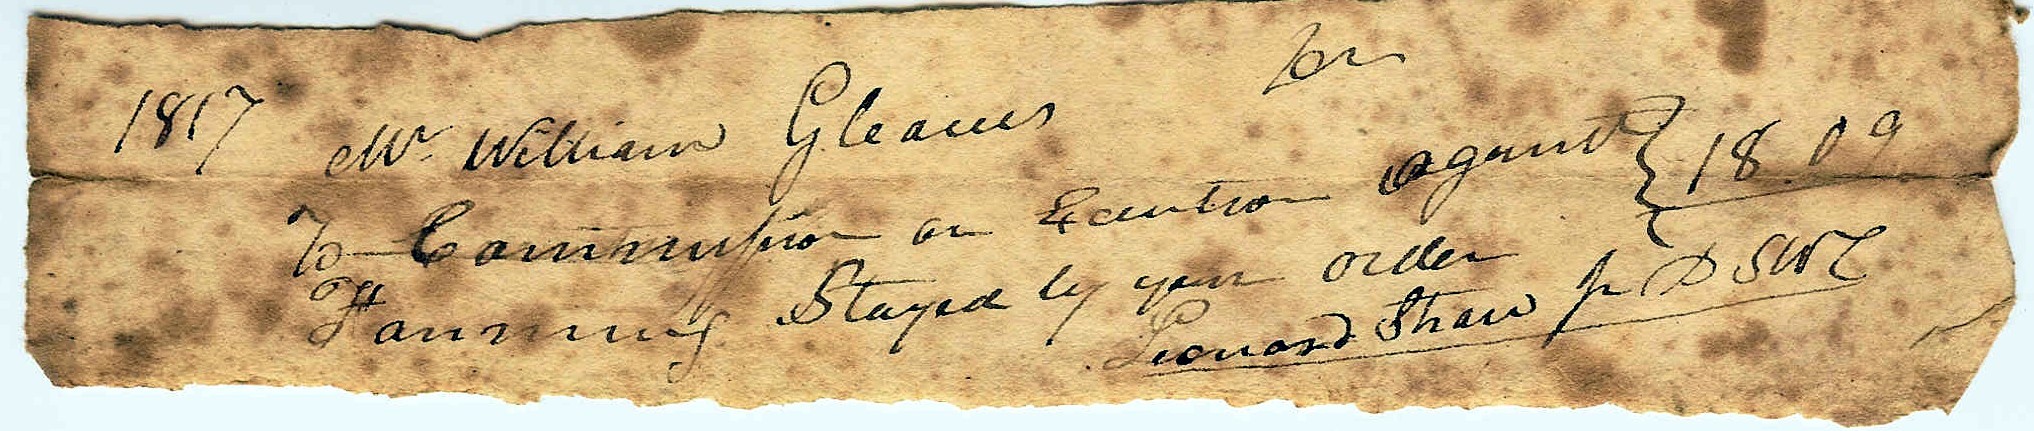 1817 Mr William Gleaves for
To Commission on Execution against } 18.09
Fanning Stayed by your order
Leonard Shaw